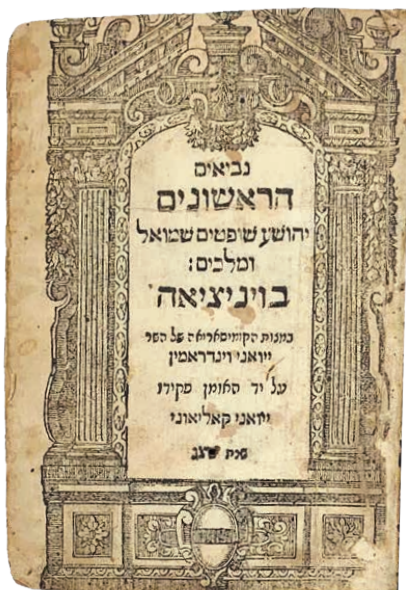 נביאים
הראשונים
יהושע שופטים שמואל
ומלכים:
בויניציאה
במצות הקומיסאריאה של השר
זואני וינדראמין
על יד האומן מקירו
זואני קאליאוני
שנת